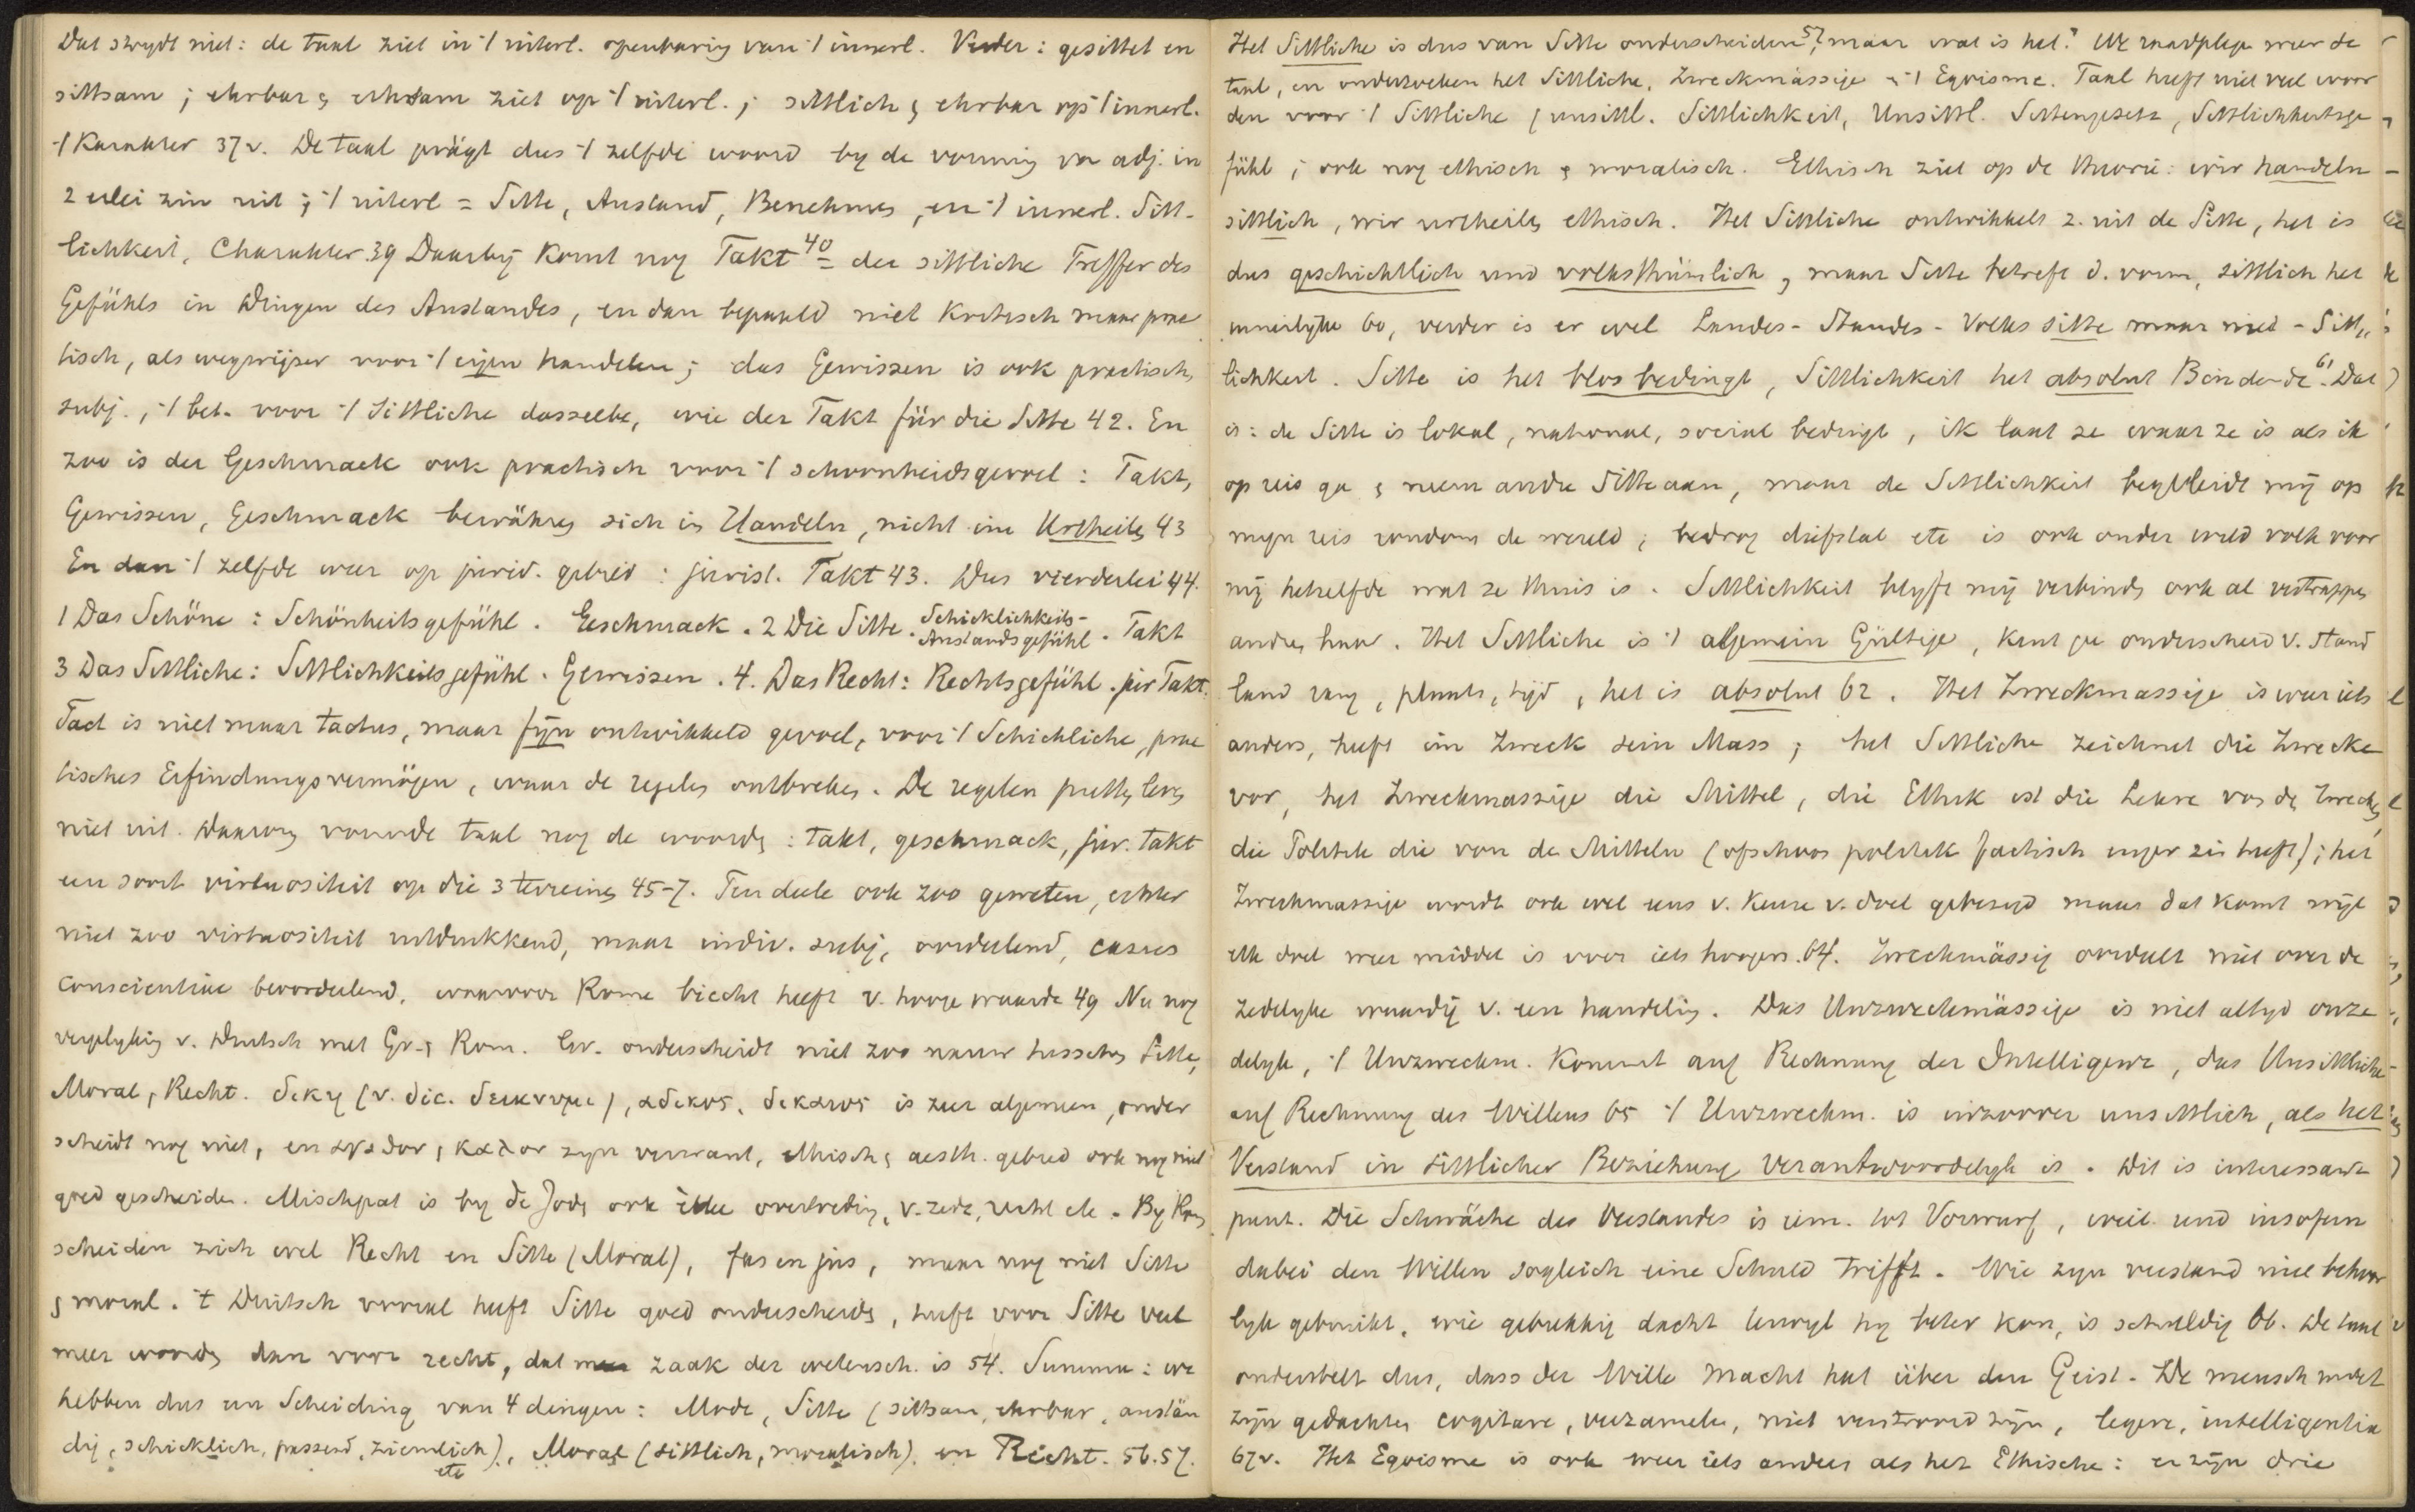 Dat strydt niet: de taal ziet in 't uiterl. openbaring van 't innerl. Verder: gesittet en
sittsam; ehrbar & ehrsam ziet op 't uiterl.; sittlich & ehrbar op 't innerl.
't Karakter 37v. De taal prägt dus 't zelfde woord by de vorming van adj. in
2 erlei zin uit; 't uiterl = Sitte, Anstand, Benehmen, en 't innerl. Sitt-
lichkeit, Charakter.39 Daarbij komt nog Takt 40 = der sittliche Treffer des
Gefühls in Dingen des Anstandes, en dan bepaald niet kritisch maar prac
tisch, als wegwijzer voor 't eigen handelen; das Gewissen is ook practisch,
subj., 't bet. voor 't Sittliche dasselbe, wie der Takt für die Sitte 42. En
zoo is der Geschmack ook practisch voor 't schoonheidsgevoel: Takt,
Gewissen, Geschmack bewähren sich in Handeln, nicht im Urtheilen 43
En dan 't zelfde weer op jurid. gebied: jurist. Takt 43. Dus vierderlei 44.
1 Das Schöne: Schönheitsgefühl. Geschmack. 2 Die Sitte. Schicklichkeits- Anstandsgefühl. Takt
3 Das Sittliche: Sittlichkeitsgefühl. Gewissen. 4. Das Recht: Rechtsgefühl. jur Takt.
Tact is niet maar tactus, maar fijn ontwikkeld gevoel, voor 't Schickliche, prac
tisches Erfindungsvermögen, waar de regelen ontbreken. De regelen putten leven
niet uit. Daarom vormde taal nog de woorden: takt, geschmack, jur. takt
een soort virtuositeit op die 3 terreinen 45-7. Ten deele ook zoo geweten, echter
niet zoo virtuositeit uitdrukkend, maar indiv. subj. oordeelend, casus
conscientiae beoordeelend, waarvoor Rome biecht heeft v. hooge waarde 49 Nu nog
vergelyking v. Duitsch met Gr. & Rom. Gr. onderscheidt niet zoo nauw tusschen Sitte,
Moral, Recht. δικη (v. dic. δεικνυμι), αδικος, δικαιος is zeer algemeen, onder
scheidt nog niet, en αγαθον, καλον zyn verwant, ethisch & aesth. gebied ook nog niet
goed gescheiden. Mischpat is by de Joden ook elke overtreding, v. zede, recht etc. By Rom
scheiden zich wel Recht en Sitte (Moral), fas en jus, maar nog niet Sitte
& moral. 't Duitsch vooral heeft Sitte goed onderscheiden, heeft voor Sitte veel
meer woorden dan voor recht, dat zaak der wetensch. is 54. Summa: we
hebben dus een Scheiding van 4 dingen: Mode, Sitte (sittsam, ehrbar, anstän
dig, schicklich, passend, ziemlich) etc, Moral (sittlich, moralisch) en Recht. 56.57.
Het Sittliche is dus van Sitte onderscheiden 57, maar wat is het? We raadplegen weer de
taal, en onderzoeken het Sittliche, Zweckmässige en 't Egoisme. Taal heeft niet veel woor
den voor 't Sittliche (unsittl. Sittlichkeit, Unsittl. Sittengesetz, Sittlichkeitsge
fühl; ook nog ethisch & moralisch. Ethisch ziet op de theorie: wir handeln
sittlich, wir urtheilen ethisch. Het Sittliche ontwikkelt z. uit de Sitte, het is
dus geschichtlich und volksthümlich, maar Sitte betreft d. vorm, sittlich het
innerlyke 60, verder is er wel Landes- Standes- Volkssitte maar niet - Sitt
lichkeit. Sitte is het blos bedingt, Sittlichkeit het absolut Bindende 61. Dat
is: de Sitte is lokal, national, social bedingt, ik laat ze waar ze is als ik
op reis ga & neem andre Sitte aan, maar de Sittlichkeit begeleidt mij op
mijn reis rondom de wereld; bedrog diefstal etc is ook onder wild volk voor
mij hetzelfde wat ze thuis is. Sittlichkeit blyft mij verbinden ook al vertrappen
andren haar. Het Sittliche is 't algemein Gültige, kent gee onderscheid v. stand
land rang, plaats, tijd, het is absolut 62. Het Zweckmassige is weer iets
anders, heeft im Zweck sein Mass; het Sittliche zeichnet die Zwecke
vor, het Zweckmassige die Mittel, die Ethik ist die Lehre von den Zwecken,
die Politik die von den Mitteln (ofschoon politiek factisch enger zin heeft); het
Zweckmassige wordt ook wel eens v. keuze v. doel gebezigd maar dat komt wijl
elk doel weer middel is voor iets hoogers. 64. Zweckmässig oordeelt niet over de
zedelyke waardij v. een handeling. Das Unzweckmässige is niet altyd onze
delyk, 't Unzweckm. kommt auf Rechnung der Intelligenz, das Unsittliche
auf Rechnung des Willens 65 't Unzweckm. is inzoover unsittlich, als het
Verstand in sittlicher Beziehung verantwoordelyk is. Dit is interessante
punt. Die Schwäche des Verstandes is een. tot Vorwurf, weil und insofern
dabei den Willen sogleich eine Schuld trifft. Wie zyn verstand niet behoor
lyk gebruikt, wie gebrekkig dacht terwyl hy beter kon, is schuldig 66. De taal
onderstelt dus, dass der Wille Macht hat über den Geist. De mensch moet
zijn gedachten cogitare, verzamelen, niet verstrooid zijn, legere, intelligentia
67v. Het Egoisme is ook weer iets anders als het Ethische: er zijn drie